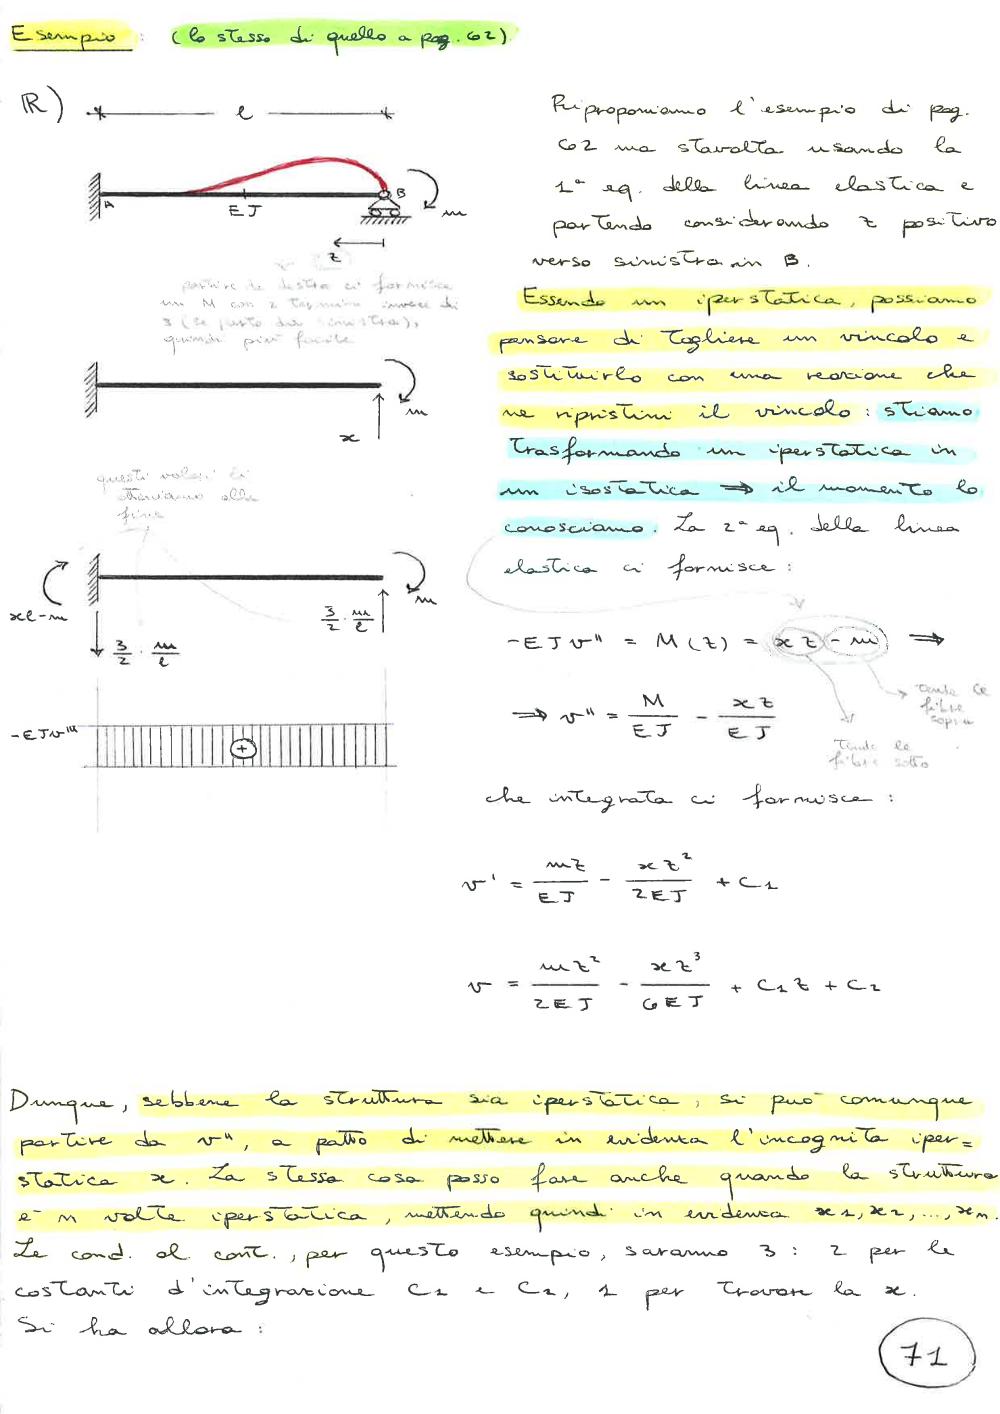 Esempio: (lo stesso di quello a pag. 62).
R)
l
A
EJ
B
m
z
partire da destra ci fornisce
un M con 2 termini invece di
3 (se parto da sinistra),
quindi più facile
Riproponiamo l'esempio di pag.
62 ma stavolta usando la
1ª eq. della linea elastica e
partendo considerando z positivo
verso sinistra in B.
Essendo un iperstatica, possiamo
pensare di togliere un vincolo e
sostituirlo con una reazione che
ne ripristini il vincolo: stiamo
trasformando un iperstatica in
un isostatica ⇒ il momento lo
conosciamo. La 2ª eq. della linea
elastica ci fornisce:
m
x
questi valori li
otteniamo alla
fine
xl-m
3/2 · m/l
3/2 · m/l
m
-EJv'''
+
-EJv'' = M(z) = xz - m ⇒
tende le
fibre
sopra
tende le
fibre sotto
⇒ v'' = M/EJ - xz/EJ
che integrata ci fornisce:
v' = mz/EJ - xz²/2EJ + C1
v = mz²/2EJ - xz³/6EJ + C1z + C2
Dunque, sebbene la struttura sia iperstatica, si può comunque
partire da v'', a patto di mettere in evidenza l'incognita iper=
statica x. La stessa cosa posso fare anche quando la struttura
è n volte iperstatica, mettendo quindi in evidenza x1, x2, ..., xn.
Le cond. al cont., per questo esempio, saranno 3: 2 per le
costanti d'integrazione C1 e C2, 1 per trovare la x.
Si ha allora:
71